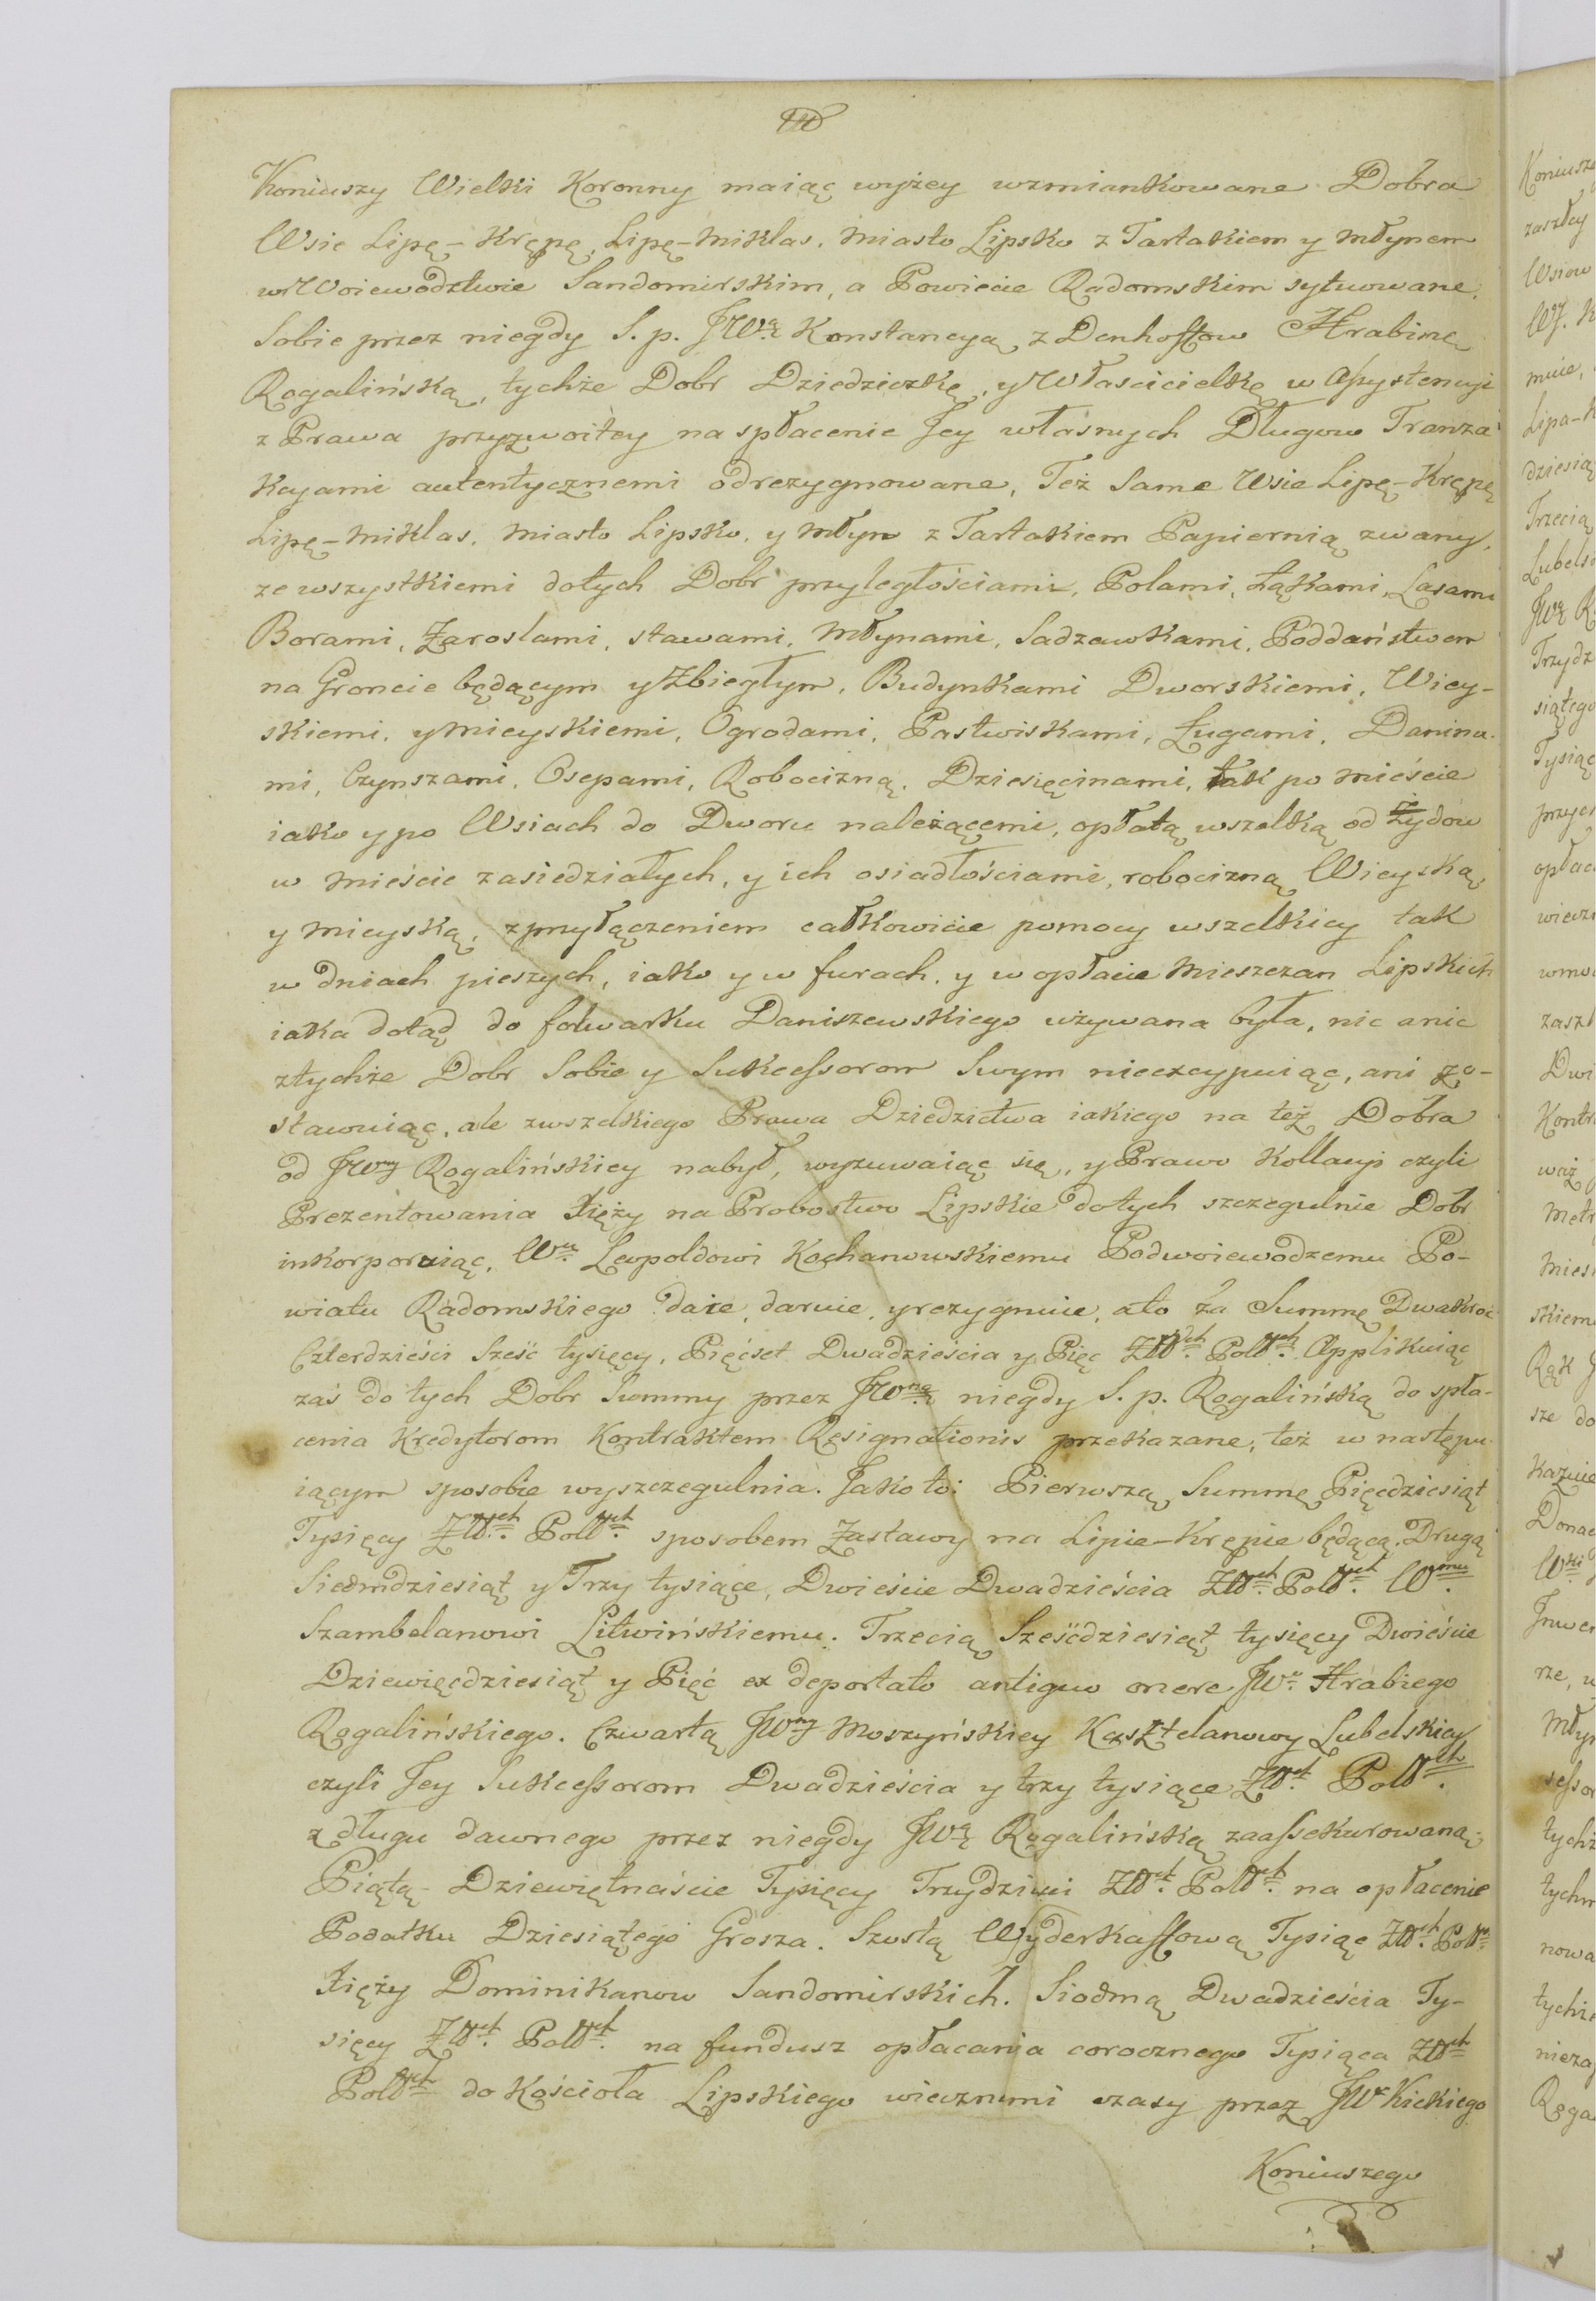 Koniuszy Wielki Koronny maiąc wyżey wzmiankowane Dobra
Wsie Lipę-Krępę, Lipę-Miklas, Miasto Lipsko z Tartakiem y Młynem
w Woiewodztwie Sandomirskim, a Powiecie Radomskim sytuowane,
Sobie przez niegdy S. p. JWą Konstancyą z Denhoffow Hrabinę
Rogalińską, tychże Dobr Dziedziczkę, y Włascicielkę w Assystencyi
z Prawa przyzwoitey na spłacenie Jey własnych Długow Tranza
kcyami autentycznemi odrezygnowane, Też Same Wsie Lipę-Krępę
Lipę-Miklas, Miasto Lipsko, y Młyn z Tartakiem Papiernią zwany,
ze wszystkiemi dotych Dobr przyległościami, Polami, Łąkami, Lasami
Borami, Zaroslami, stawami, Młynami, Sadzawkami, Poddaństwem
na Groncie będącym y Zbiegłym, Budynkami Dworskiemi, Wiey-
skiemi, y Mieyskiemi, Ogrodami, Pastwiskami, Ługami, Danina-
mi, Czynszami, Osepami, Robocizną, Dziesięcinami, tak po Mieście
iako y po Wsiach do Dworu należącemi, opłatą wszelką od Żydow
w Mieście zasiedziałych, y ich osiadłościami, robocizną Wieyską,
y Mieyską, z przyłączeniem całkowicie pomocy wszelkiey tak
w dniach pieszych, iako y w furach, y w opłacie Mieszczan Lipskich
iaka dotąd do folwarku Daniszewskiego używana była, nic a nic
z tychże Dobr Sobie y Sukcessorom Swym nieexcypuiąc, ani zo-
stawuiąc, ale z wszelkiego Prawa Dziedzictwa iakiego na też Dobra
od JWny Rogalińskiey nabył, wyzuwaiąc się, y Prawo Kollacyi czyli
Prezentowania Xięży na Probostwo Lipskie dotych szczegulnie Dobr
inkorporuiąc, Wu Leopoldowi Kochanowskiemu Podwoiewodzemu Po-
wiatu Radomskiego daie, daruie, y rezygnuie, a to za Summę Dwakroc
Czterdzieści Sześć tysięcy, Pięćset Dwadzieścia y Pięc Złłch Pollch Applikuiąc
zaś do tych Dobr Summy przez JWną niegdy S. p. Rogalińską do spła-
cenia Kredytorom Kontraktem Resignationis przekazane, też w następu-
iącym sposobie wyszczegulnia. Jako to: Pierwszą Summę Pięcdziesiąt
Tysięcy Złłch Pollch sposobem Zastawy na Lipie-Krępie będącą. Drugą
Siedmdziesiąt y Trzy tysiące, Dwieście Dwadzieścia Złłch Pollch Wmu
Szambelanowi Litwińskiemu. Trzecią Sześcdziesiąt tysięcy Dwieście
Dziewięcdziesiąt y Pięć ex deportato antiquo onere JWo Hrabiego
Rogalińskiego. Czwartą JWny Moszyńskiey Kasztelanowy Lubelskiey
czyli Jey Sukcessorom Dwadzieścia y trzy tysiące Złłch Pollch
z długu dawnego przez niegdy JWą Rogalińską zaassekurowaną.
Piątą Dziewiętnaście Tysięcy Trzydzieści Złłch Pollch na opłacenie
Podatku Dziesiątego Grosza. Szostą Wyderkaffową Tysiąc Złłch Pollch
Xięży Dominikanow Sandomirskich. Siodmą Dwadzieścia Ty-
sięcy Złłch Pollch na fundusz opłacania corocznego Tysiąca Złłch
Pollch do Kościoła Lipskiego wiecznemi czasy przez JWo Kickiego
Koniuszego